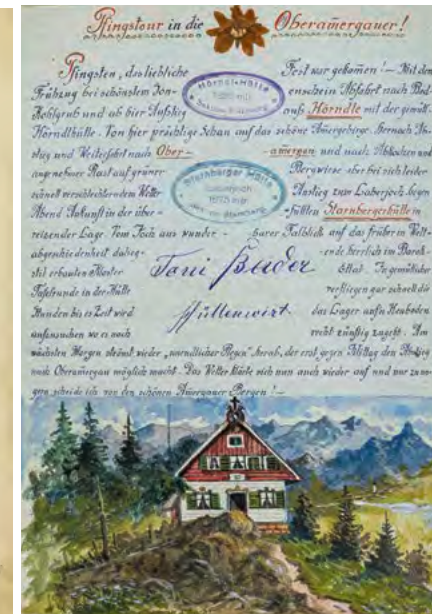 Pfingstour in die Oberamergauer!
Pfingsten, das liebliche Fest war gekommen! — Mit dem
Frühzug bei schönstem Son- enschein Abfahrt nach Bad-
Kohlgrub und ab hier Aufstieg aufs Hörndle mit der gemütl.
Hörnle-Hütte
Hörndlhütte. Von hier prächtige Schau auf das schöne Amergebirge. Hernach Ab-
stieg und Weiterfahrt nach Ober- amergau und nach Abkochen und
angenehmer Rast auf grüner Bergwiese aber bei sich leider
schnell verschlechterndem Wetter Anstieg zum Laberjoch. Gegen
Starnberger Hütte
Abend Ankunft in der über- füllten Starnbergerhütte in
reizender Lage. Vom Joch aus wunder- barer Talblick auf das früher in Welt-
abgeschiedenheit dalieg- ende herrlich im Barock-
stil erbauten Kloster Ettal. In gemütlicher
Toni Bader
Tafelrunde in der Hütte verfliegen gar schnell die
Stunden bis es Zeit wird das Lager aufm Heuboden
Hüttenwirt
aufzusuchen wo es noch recht zünftig zugeht. Am
nächsten Morgen strömt wieder „unendlicher Regen" herab, der erst gegen Mittag den Abstieg
nach Oberamergau möglich macht. Das Wetter klärte sich nun auch wieder auf und nur un-
gern scheide ich von den schönen Amergauer Bergen! —